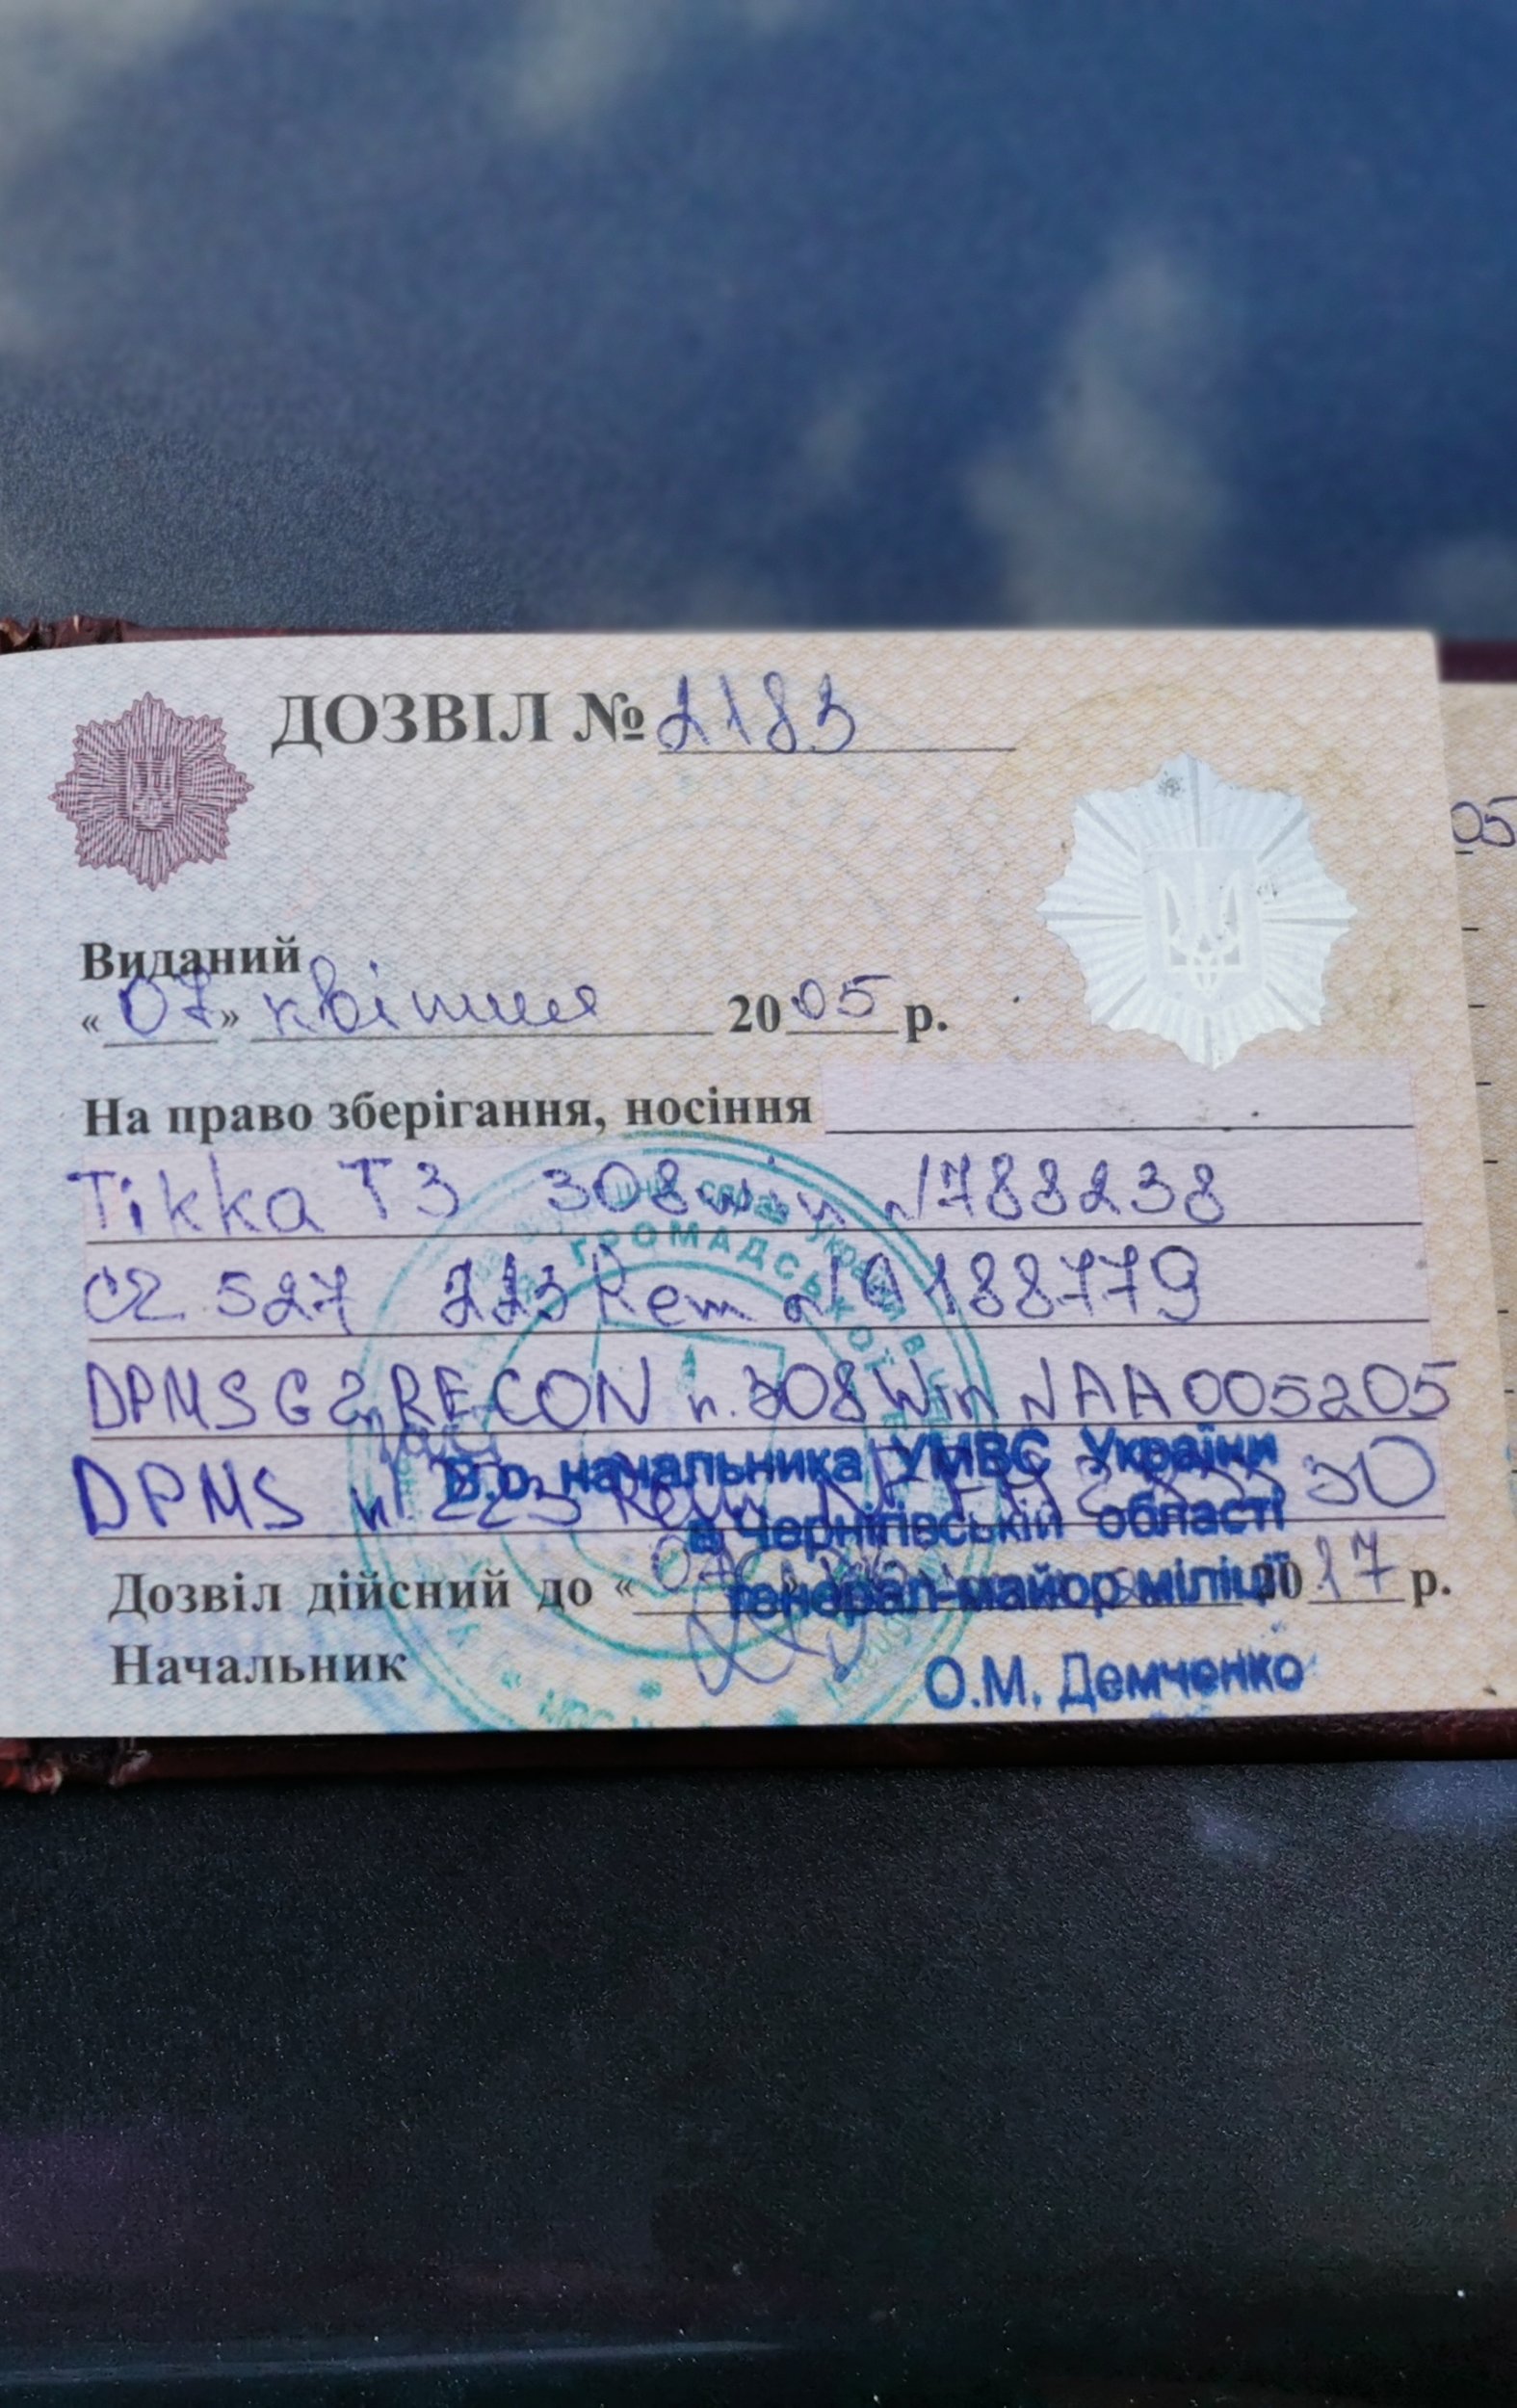 ДОЗВІЛ № 2183
05
Виданий
«07» квітня 2005 р.
На право зберігання, носіння
Tikka T3 308 win N788238
CZ 527 223 Rem N А188779
ГРОМАДСЬКОЇ
DPMS G2 RECON п. 308 Win N AA005205
DPMS п. 223 Rem
В.о. начальника УМВС України
в Чернігівській області
генерал-майор міліції
Дозвіл дійсний до «07» 2017 р.
Начальник
О.М. Демченко